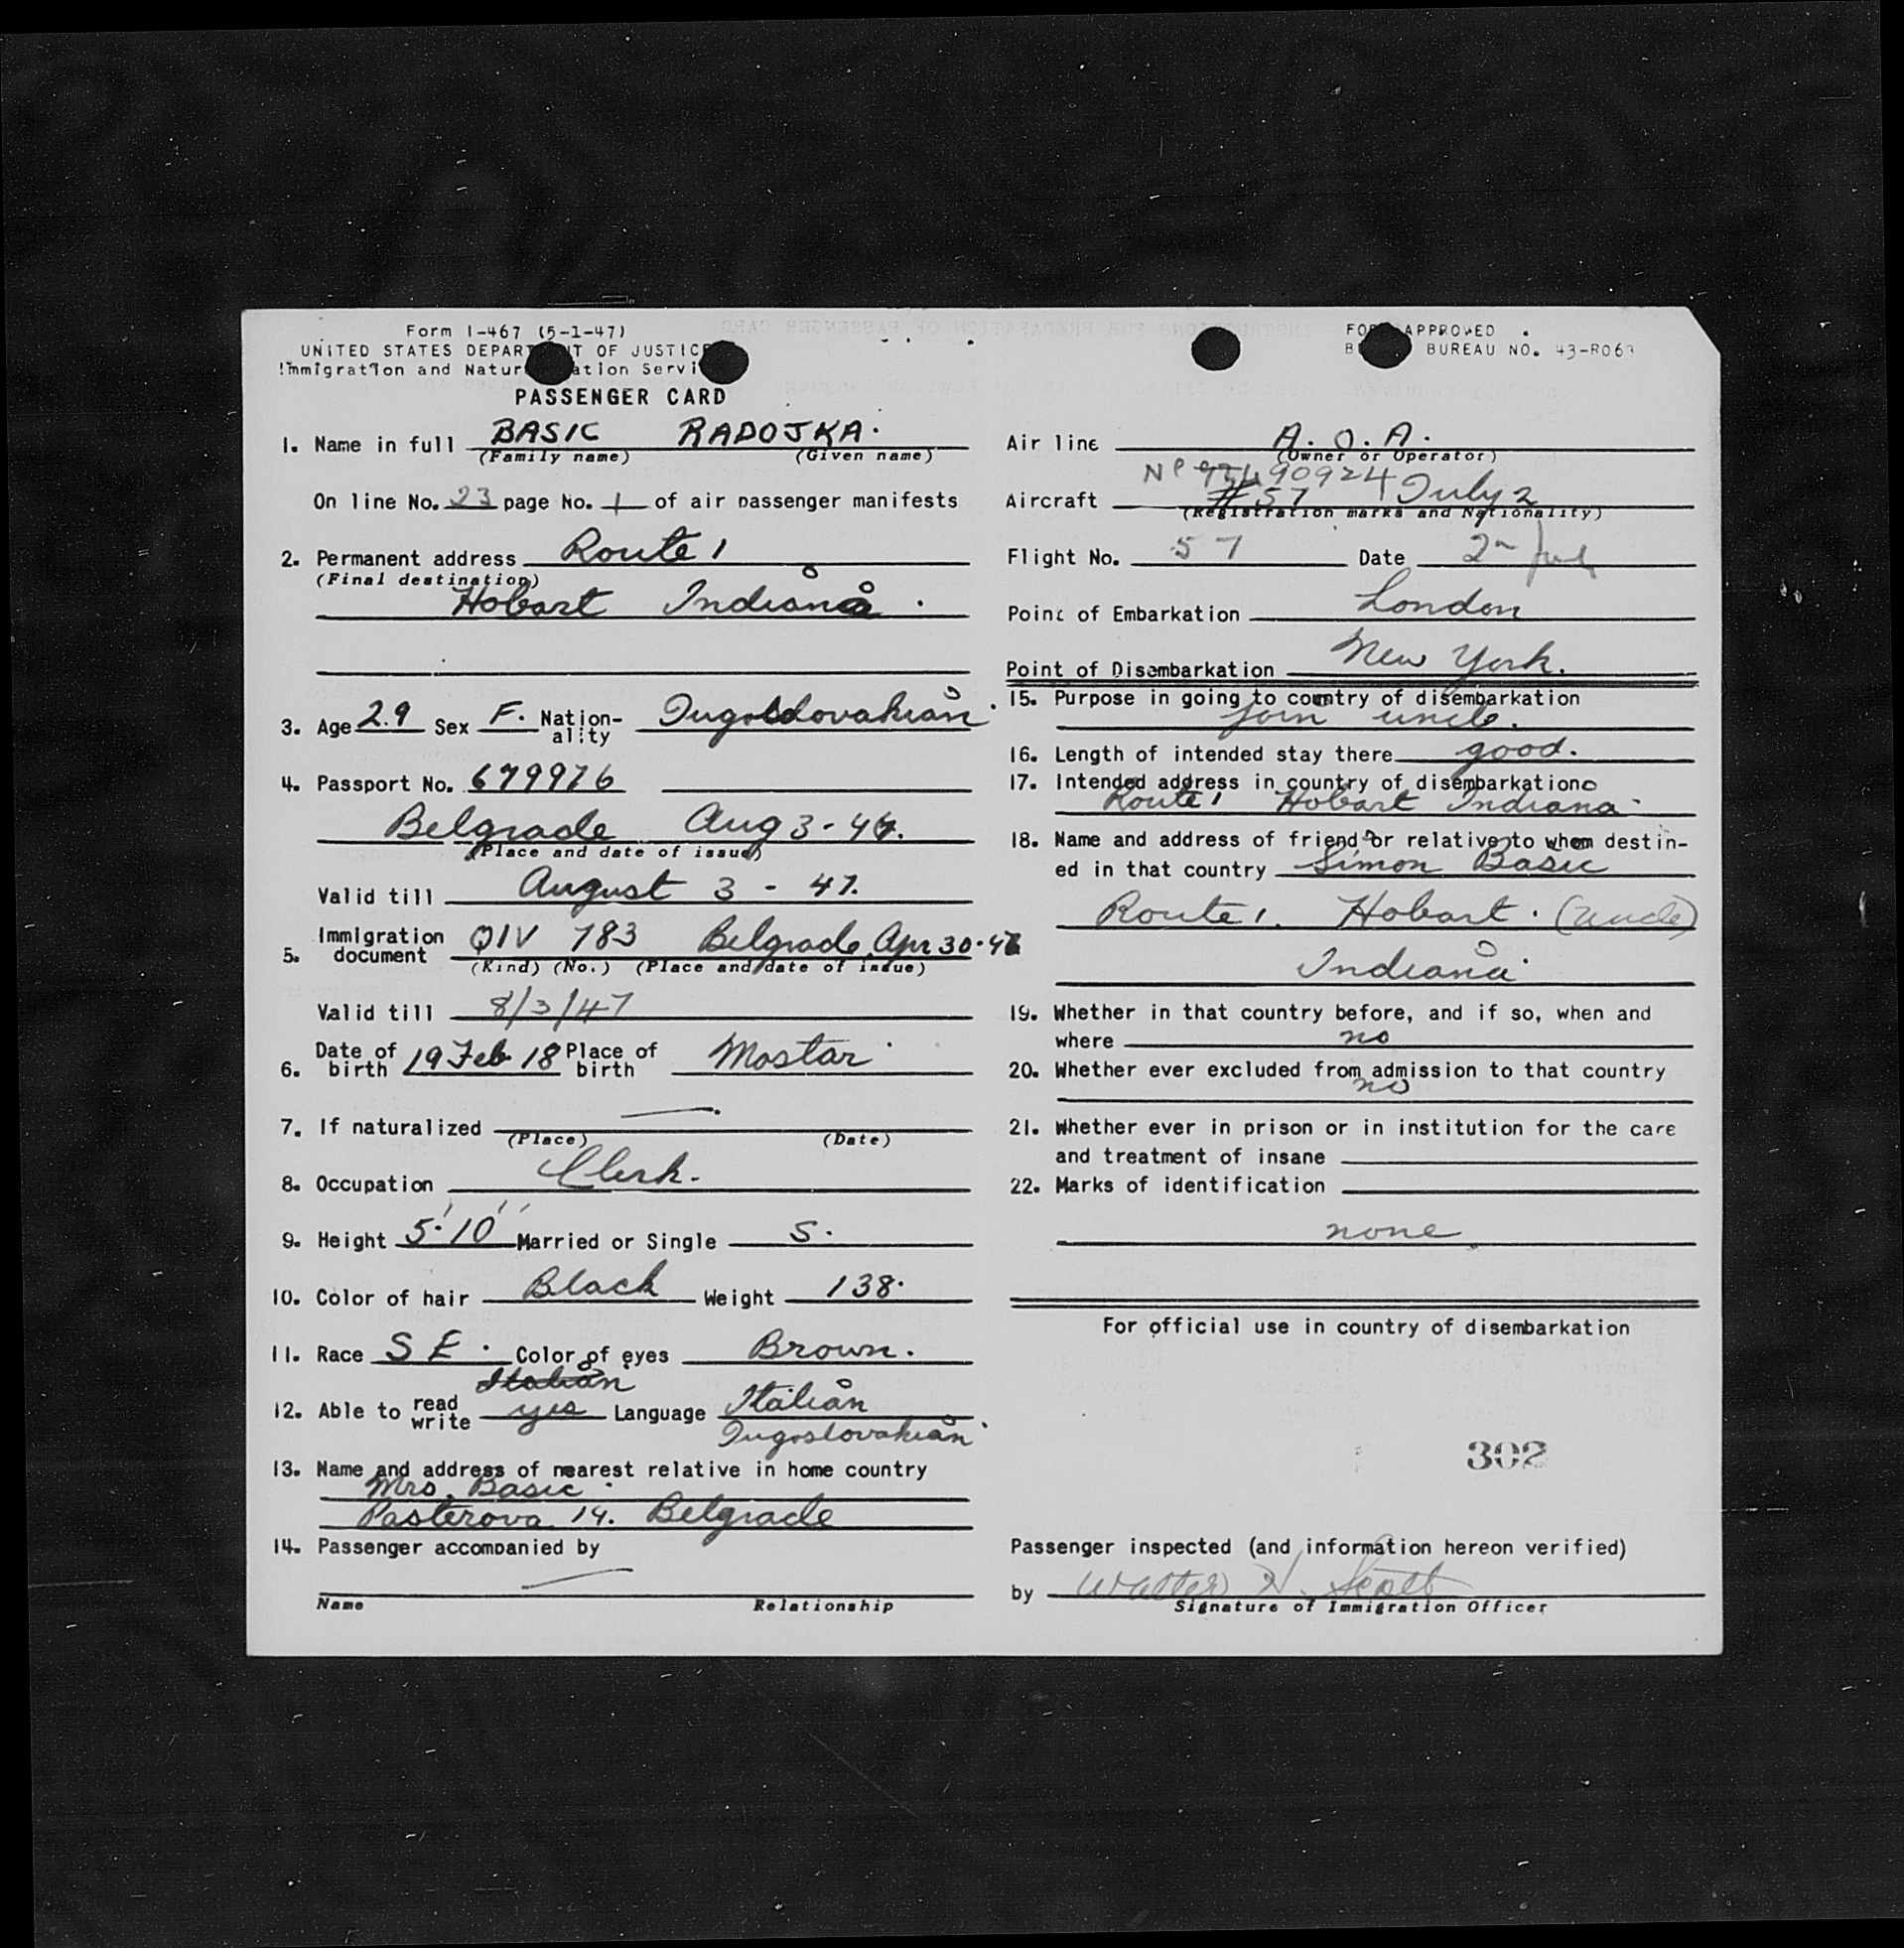 Form I-467 (5-1-47)
UNITED STATES DEPARTMENT OF JUSTICE
Immigration and Naturalization Service
PASSENGER CARD
FORM APPROVED
BUREAU NO. 43-R063
1. Name in full BASIC RADOJKA.
(Family name) (Given name)
On line No. 23 page No. 1 of air passenger manifests
2. Permanent address Route 1
(Final destination)
Hobart Indiana.
3. Age 29 Sex F. Nationality Jugoslovakian.
4. Passport No. 679976
Belgrade Aug 3-46.
(Place and date of issue)
Valid till August 3 - 47.
5. Immigration document QIV 783 Belgrade Apr 30-47
(Kind) (No.) (Place and date of issue)
Valid till 8/3/47
6. Date of birth 19 Feb 18 Place of birth Mostar
7. If naturalized —
(Place) (Date)
8. Occupation Clerk.
9. Height 5'10'' Married or Single S.
10. Color of hair Black Weight 138.
11. Race S E. Color of eyes Brown.
Italian
12. Able to read write yes Language Italian
Jugoslovakian
13. Name and address of nearest relative in home country
Mrs. Basic
Pasterova 14. Belgrade
14. Passenger accompanied by
—
Name Relationship
Air line A.O.A.
(Owner or Operator)
90924
Aircraft #57 July 2
(Registration marks and Nationality)
Flight No. 57 Date 2 July
Point of Embarkation London
Point of Disembarkation New York.
15. Purpose in going to country of disembarkation
join uncle.
16. Length of intended stay there good.
17. Intended address in country of disembarkation
Route 1 Hobart Indiana
18. Name and address of friend or relative to whom destin-
ed in that country Simon Basic
Route 1. Hobart. (Uncle)
Indiana
19. Whether in that country before, and if so, when and
where no
20. Whether ever excluded from admission to that country
no
21. Whether ever in prison or in institution for the care
and treatment of insane
22. Marks of identification
none
For official use in country of disembarkation
302
Passenger inspected (and information hereon verified)
by Walter H. Scott
Signature of Immigration Officer